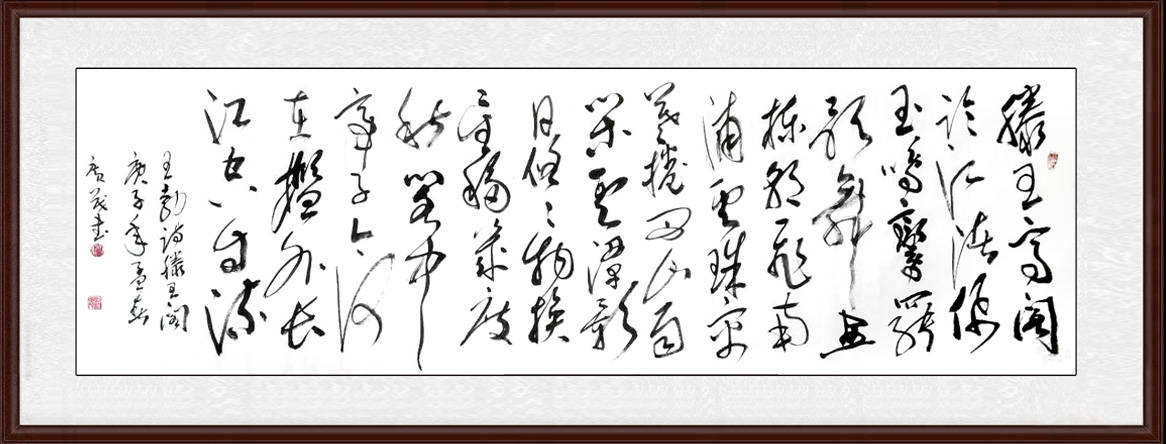 滕王高阁
临江渚佩
玉鸣鸾罢
歌舞画
栋朝飞南
浦云珠帘
暮捲西山雨
闲云潭影
日悠悠物换
星移几度
秋阁中
帝子今何
在槛外长
江空自流
王勃诗滕王阁
庚子年孟春
书